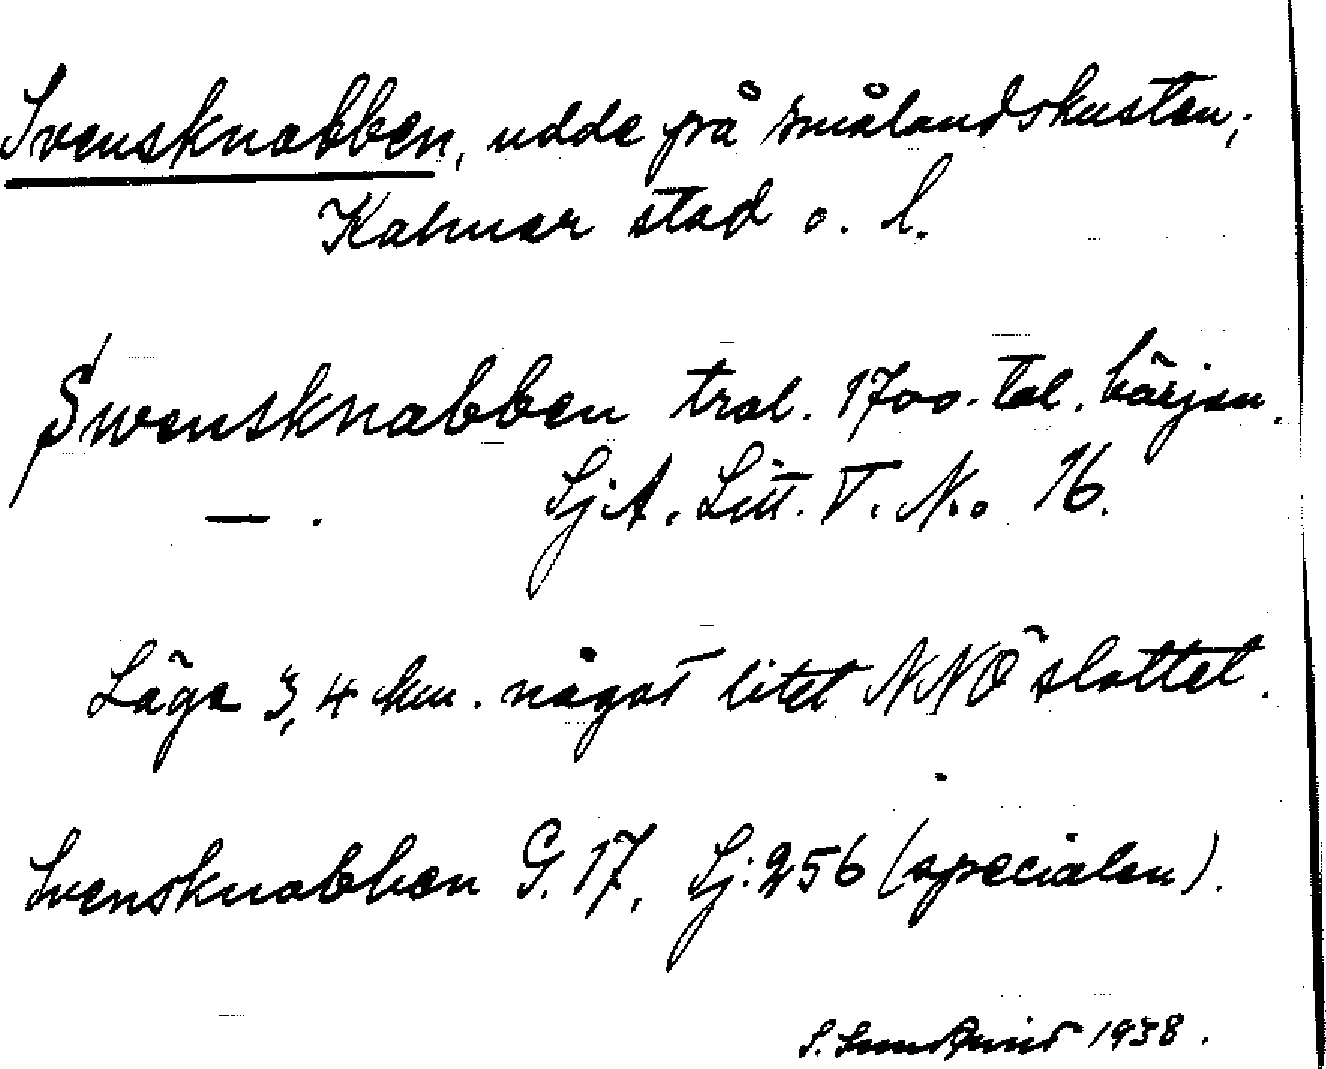 Svensknabben, udde på smålandskusten;
Kalmar stad o. l.
Swensknabben trol. 1700-tal. början.
— . Sj.A. Litt. T. No 16.
Läge 3,4 km. något litet NNÖ slottet.
Svensknabben G. 17, Sj:256 (specialen).
S. 1938.